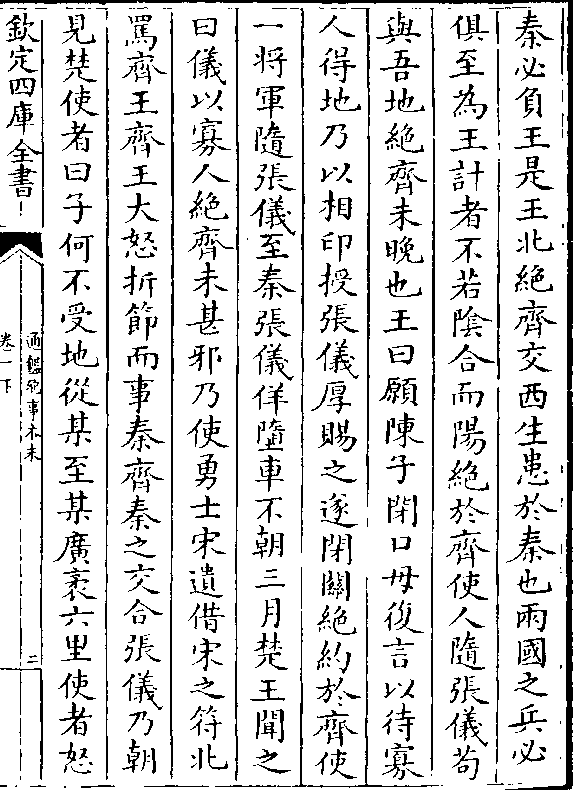 秦必負王是王北絶齊交西生患於秦也兩國之兵必
俱至為王計者不若陰合而陽絶於齊使人隨張儀苟
與吾地絶齊未晚也王曰願陳子閉口毋復言以待寡
人得地乃以相印授張儀厚賜之遂閉關絶約於齊使
一将軍隨張儀至秦張儀佯墮車不朝三月楚王聞之
曰儀以寡人絶齊未甚邪乃使勇士宋遺借宋之符北
罵齊王齊王大怒折節而事秦齊秦之交合張儀乃朝
見楚使者曰子何不受地從某至某廣袤六里使者怒
欽定四庫全書
通鑑紀事本末
卷一下
二